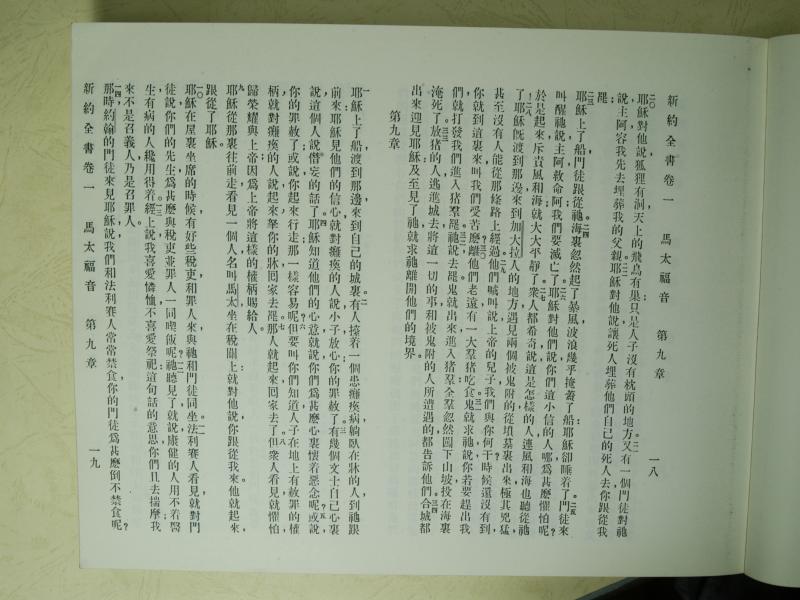 新約全書卷一 馬太福音 第九章 一八
二〇耶穌對他說,狐狸有洞,天上的飛鳥有巢,只是人子沒有枕頭的地方。二一又有一個門徒對祂
說,主阿,容我先去埋葬我的父親。二二耶穌對他說,讓死人埋葬他們自己的死人去,你跟從我
罷。
二三耶穌上了船,門徒跟從祂。二四海裏忽然起了暴風,波浪幾乎掩蓋了船;耶穌卻睡着了。二五門徒來
叫醒祂,說,主阿,救命阿,我們要滅亡了。二六耶穌對他們說,你們這小信的人哪,爲甚麽懼怕呢?
於是起來,斥責風和海,就大大平靜了。二七衆人都希奇,說,這是怎樣的人,連風和海也聽從祂
了!二八耶穌旣渡到那邊,來到加大拉人的地方,遇見兩個被鬼附的,從墳墓裏出來,極其兇猛,
甚至沒有人能從那條路上經過。二九他們喊叫說,上帝的兒子,我們與你何干?時候還沒有到,
你就到這裏來叫我們受苦麽?三〇離他們老遠,有一大羣猪吃食。三一鬼就求祂說,你若要趕出我
們,就打發我們進入猪羣罷。三二祂說,去罷。鬼就出來,進入猪羣,全羣忽然闖下山坡,投在海裏
淹死了。三三放猪的人逃進城去,將這一切的事,和被鬼附的人所遭遇的,都告訴他們。三四合城都
出來迎見耶穌;及至見了祂,就求祂離開他們的境界。
第九章
一耶穌上了船,渡到那邊,來到自己的城裏。二有人擡着一個患癱瘓病,躺臥在牀的人,到祂跟
前來。耶穌見他們的信心,就對癱瘓的人說,小子放心,你的罪赦了。三有幾個文士自己心裏
說,這個人說僭妄的話了。四耶穌知道他們的心意,就說,你們爲甚麽心裏懷着惡念呢?五或說,
你的罪赦了,或說,你起來行走,那一樣容易呢?六但要叫你們知道人子在地上有赦罪的權
柄,就對癱瘓的人說,起來,拏你的牀囘家去罷。七那人就起來,囘家去了。八但衆人看見,就懼怕,
歸榮耀與上帝,因爲上帝將這樣的權柄賜給人。
九耶穌從那裏往前走,看見一個人,名叫馬太,坐在稅關上,就對他說,你跟從我來。他就起來
跟從了耶穌。
一〇耶穌在屋裏坐席的時候,有好些稅吏和罪人來,與祂和門徒同坐。一一法利賽人看見,就對門
徒說,你們的先生爲甚麽與稅吏並罪人一同喫飯呢?一二祂聽見了,就說,康健的人用不着醫
生,有病的人纔用得着。一三經上說,我喜愛憐恤,不喜愛祭祀;這句話的意思,你們且去揣摩;我
來不是召義人,乃是召罪人。
一四那時約翰的門徒來見耶穌,說,我們和法利賽人常常禁食,你的門徒爲甚麽倒不禁食呢?
新約全書卷一 馬太福音 第九章 一九